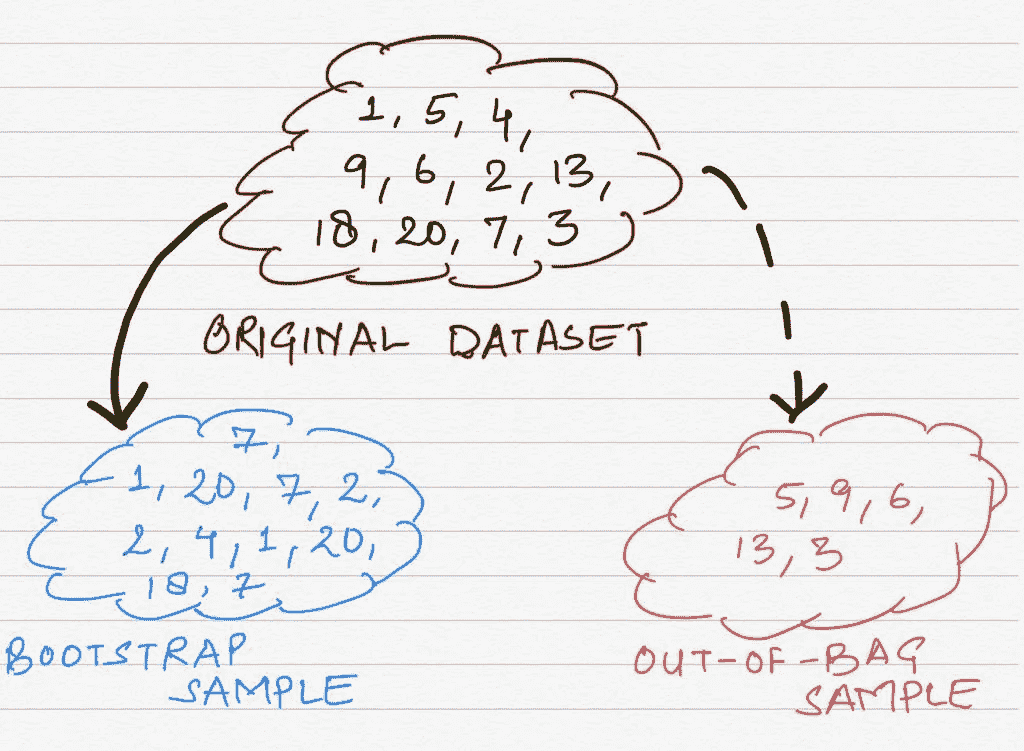 1, 5, 4,
9, 6, 2, 13,
18, 20, 7, 3
ORIGINAL DATASET
7,
1, 20, 7, 2,
2, 4, 1, 20,
18, 7
BOOTSTRAP
SAMPLE
5, 9, 6,
13, 3
OUT-OF-BAG
SAMPLE